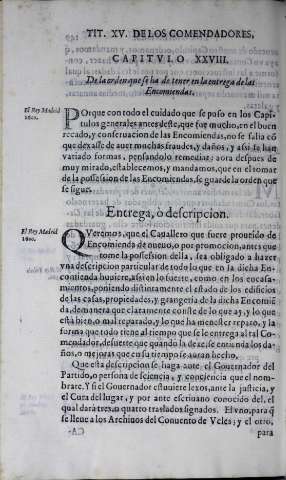 TIT. XV. DE LOS COMENDADORES,
CAPITVLO XXVIII.
De la orden que se ha de tener en la entrega de las
Encomiendas.
El Rey Madrid
1600.
POr que con todo el cuidado que se puso en los Capi-
tulos generales antes deste, que fue mucho, en el buen
recado, y conseruacion de las Encomiendas, no se falia cõ
que dexasse de auer muchas fraudes, y daños, y assi se han
variado formas, pensando lo remediar: aora despues de
muy mirado, establecemos, y mandamos, que en el tomar
de la possession de las Encomiendas, se guarde la orden que
se sigue.
Entrega, ò descripcion.
El Rey Madrid
1600.
QVeremos, que el Cauallero que fuere proueido de
Encomienda de nueuo, o por promocion, antes que
tome la possession della, sea obligado a hazer
vna descripcion particular de todo lo que en la dicha En-
comienda huuiere, assi en lo fuerte, como en los encasa-
mientos, poniendo distintamente el estado de los edificios
de las casas, propiedades, y grangeria de la dicha Encomiē
da, de manera que claramente conste de lo que ay, y lo que
està bien, o mal reparado, y lo que ha menester reparo, y la
forma que todo tiene al tiempo que se le entrega al tal Co-
mendador, desuerte que quando la dexe, se entienda los da-
ños, o mejoras que en su tiempo se auran hecho.
Que esta descripcion se haga ante el Gouernador del
Partido, o persona de sciencia, y conciencia que el nom-
brare. Y si el Gouernador estuuiere lexos, ante la justicia, y
el Cura del lugar, y por ante escriuano conocido del, el
qual darà tres, o quatro traslados signados. El vno, para q̃
se lleue a los Archiuos del Conuento de Vcles; y el otro,
para